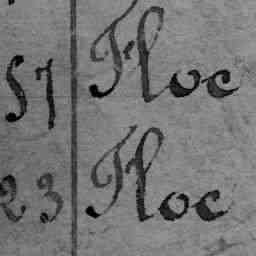 57 Floc
23 Floc